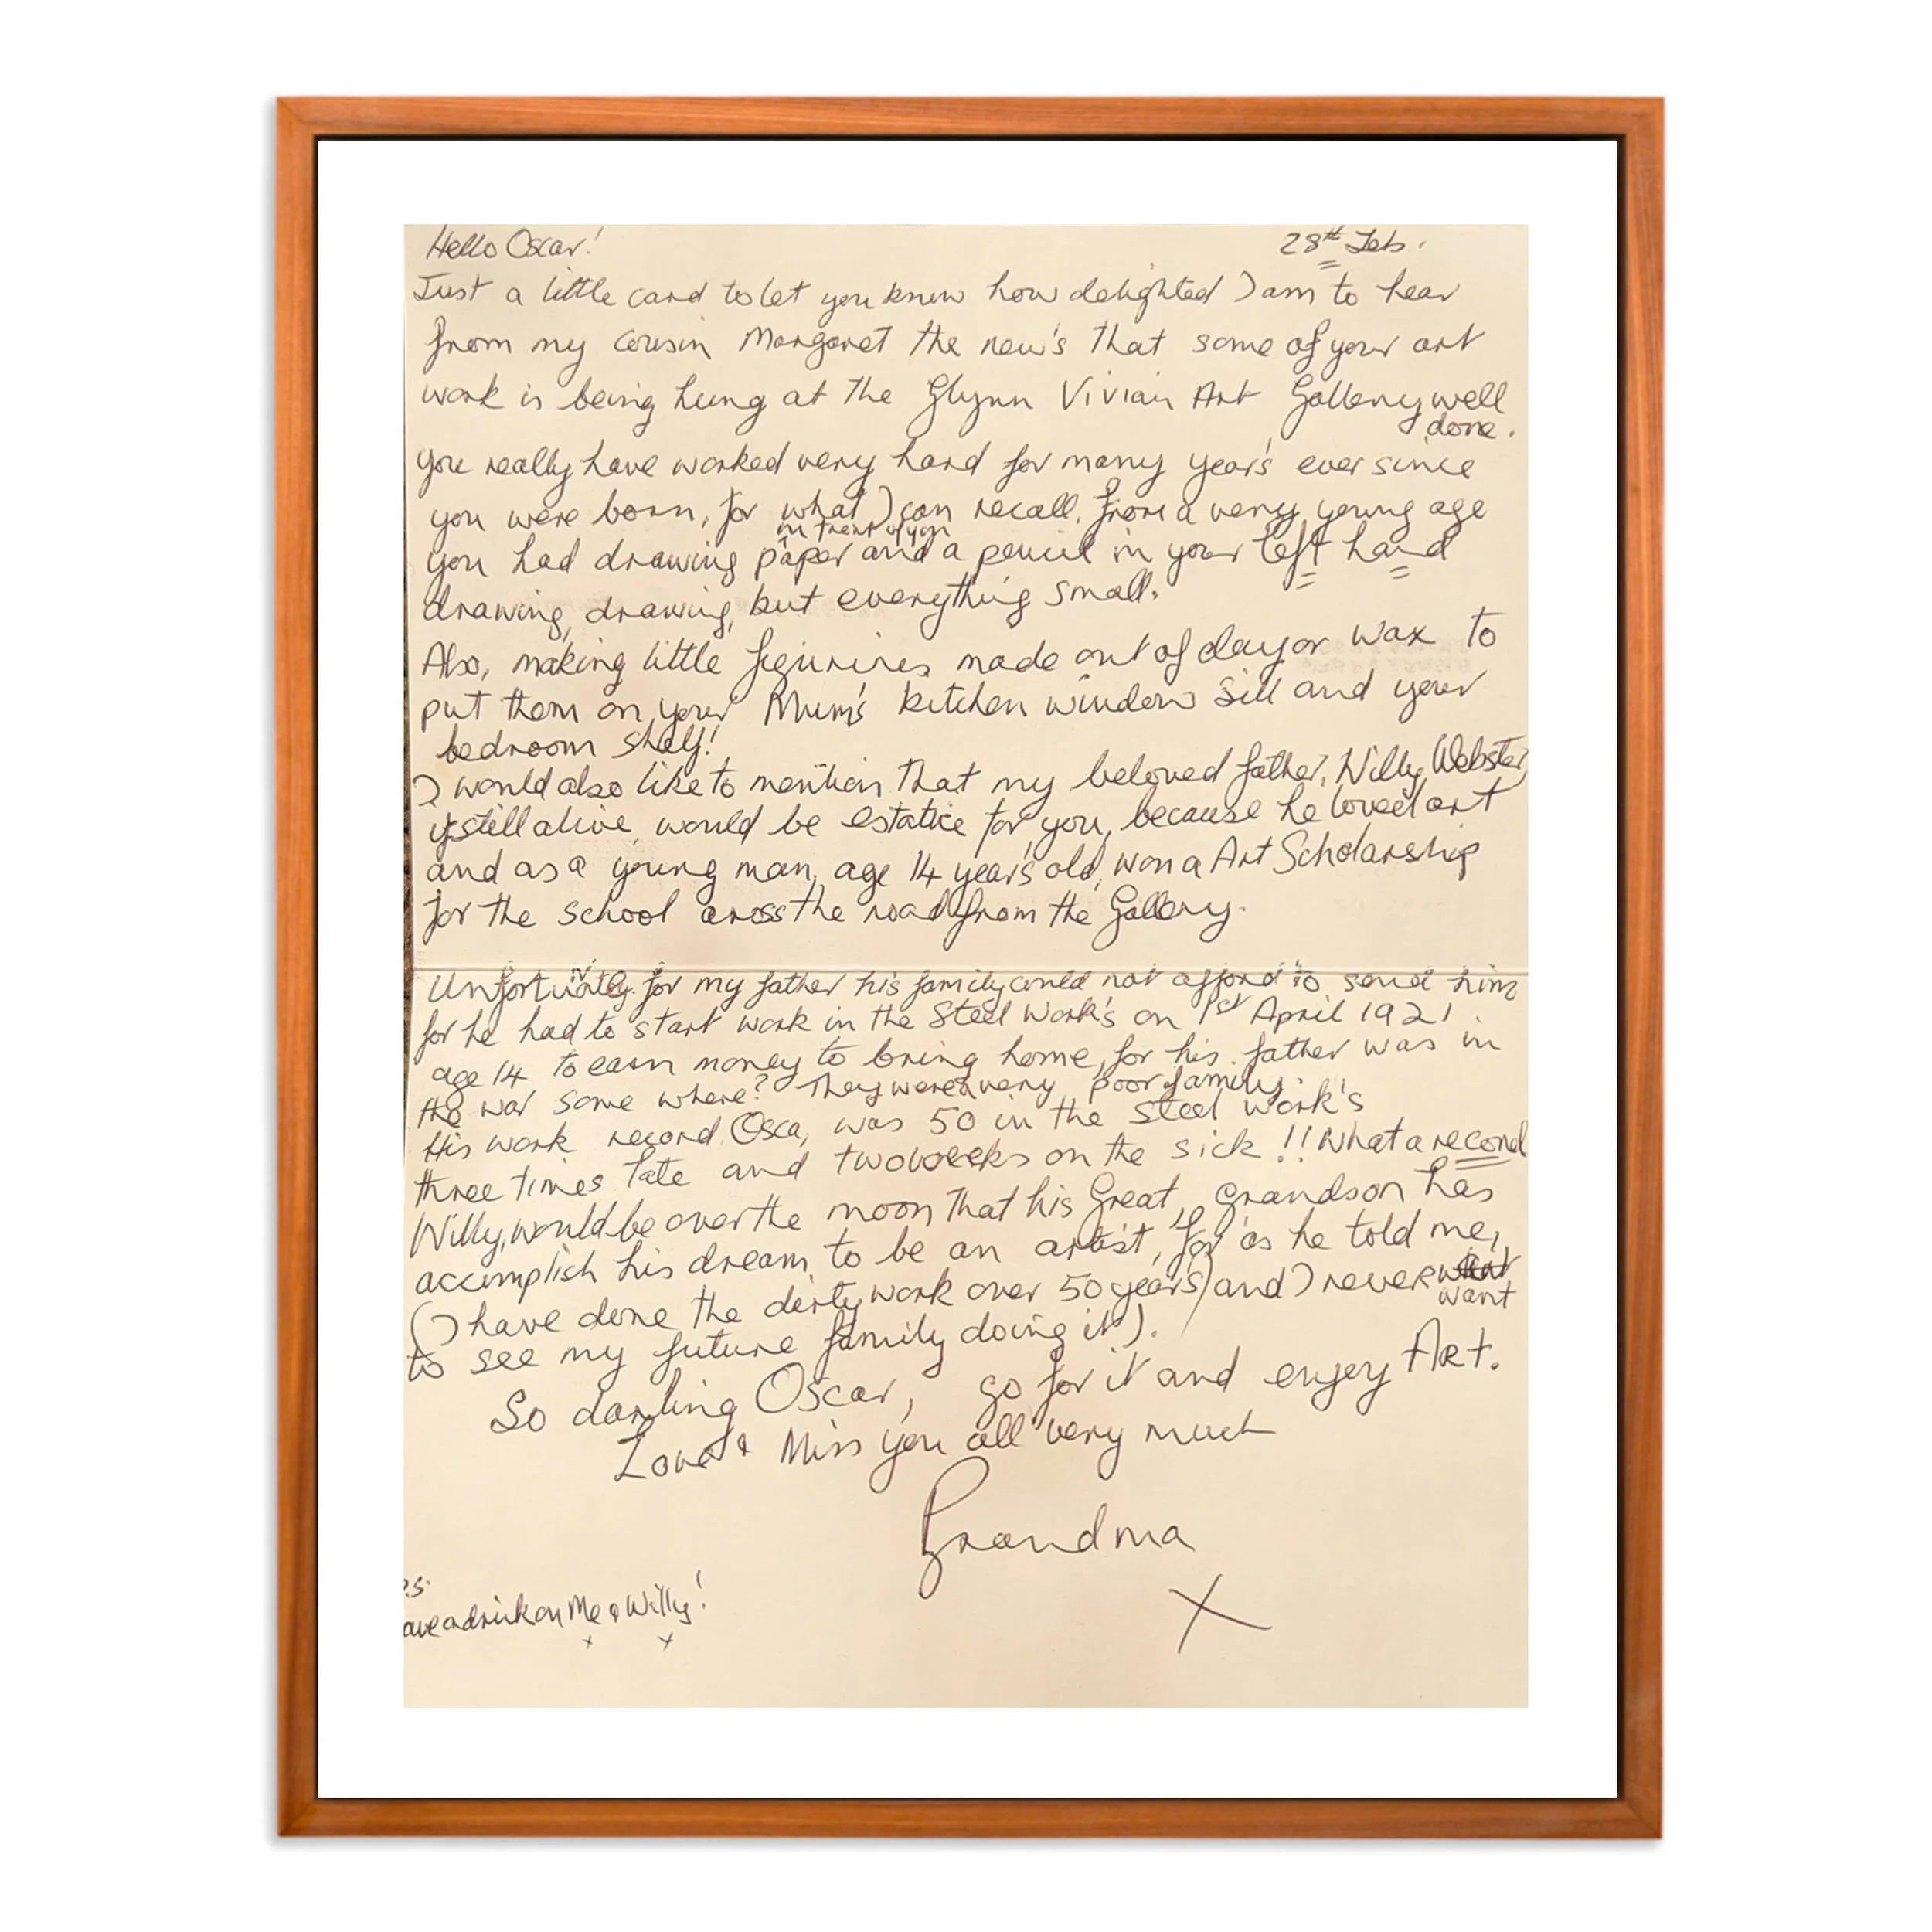 Hello Oscar! 28th Feb.
Just a little card to let you know how delighted I am to hear
from my cousin Margaret the new's that some of your art
work is being hung at the Glynn Vivian Art Gallery well
done.
you really have worked very hard for many year's ever since
you were born, for what I can recall. from a very young age
in front of you
you had drawing paper and a pencil in your left hand
drawing, drawing, but everything small.
Also, making little figurines made out of clay or wax to
put them on your Mum's kitchen window sill and your
bedroom shelf!
I would also like to mention that my beloved father, Willy Webster,
if still alive, would be estatice for you, because he loved art
and as a young man, age 14 year's old, won a Art Scholarship
for the school aross the road from the Gallery.
for my father his family could not afford to send him
for he had to start work in the Steel Work's on 1st April 1921.
age 14 to earn money to bring home, for his father was in
the war some where? They were a very poor family.
His work record, Osca, was 50 in the Steel Work's
three times late and two weeks on the sick!! What a record
Willy, would be over the moon that his Great, grandson has
accomplish his dream to be an artist, for as he told me,
(I have done the dirty work over 50 years) and I never
want
to see my future family doing it).
So darling Oscar, go for it and enjoy ARt.
Love & Miss you all very much
Grandma
X
.S.
ave a drink on Me & Willy!
x x